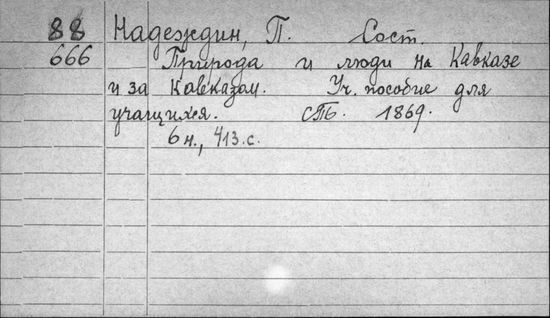 88 Надеждин, П. Сост.
666 Природа и люди на Кавказе
и за Кавказом. Уч. пособие для
учащихся. СПБ. 1869.
6 н., 413 с.